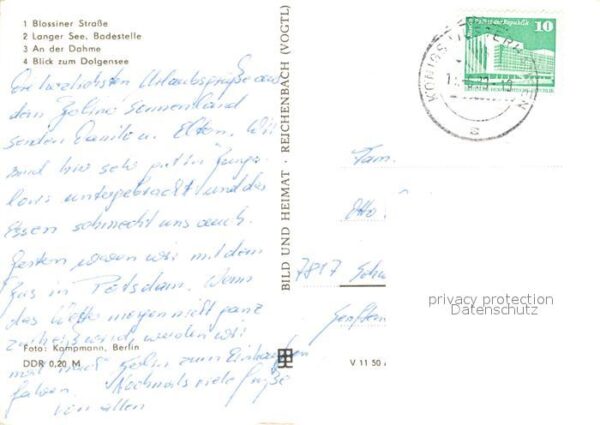 1 Blossiner Straße
2 Langer See, Badestelle
3 An der Dahme
4 Blick zum Dolgensee
Die herzlichsten Urlaubsgrüße aus
dem
senden Danilo u. Eltern. Wir
sind hier sehr gut in
untergebracht und das
Essen schmeckt uns auch.
Gestern waren wir mit dem
Bus in Potsdam. Wenn
das Wetter morgen nicht ganz
zu heiß wird, werden wir
mal nach Berlin zum Einkaufen
fahren. Nochmals viele Grüße
von allen
Foto: Kampmann, Berlin
DDR 0,20 M
BILD UND HEIMAT · REICHENBACH (VOGTL)
V 11 50
Palast der Republik
10
KÖNIGS WUSTERHAUSEN
a
Fam.
Otto
7817
privacy protection
Datenschutz